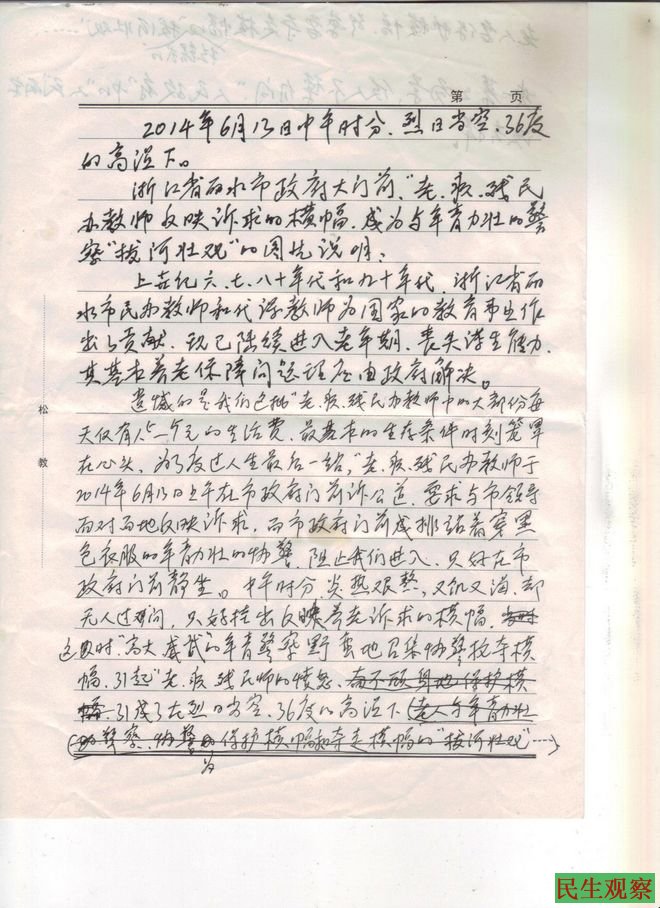 第 页
2014年6月13日中午时分、烈日当空、36度
的高温下。
浙江省丽水市政府大门前、"老、疾、残民
办教师反映诉求的横幅、成为与年青力壮的警
察"拔河壮观"的图片说明:
上世纪六、七、八十年代和九十年代、浙江省丽
水市民办教师和代课教师为国家的教育事业作
出了贡献、现已陆续进入老年期、丧失谋生能力、
其基本养老保障问题理应由政府解决。
遗憾的是我们这批"老、疾、残民办教师中的大部份每
天仅有 元的生活费、最基本的生存条件时刻笼罩
在心头、为了度过人生最后一站、"老、疾、残民办教师于
2014年6月13日上午在市政府门前诉公道、要求与市领导
面对面地反映诉求、而市政府门前成排站着穿黑
色衣服的年青力壮的协警、阻止我们进入、只好在市
政府门前静坐。中午时分、炎热艰熬、又饥又渴、却
无人过问、只好挂出反映养老诉求的横幅、
这时"高大威武"的年青警察野蛮地召集协警抢夺横
幅、引起"老、疾、残民师的愤怒、而不顾身地保护横
幅、引成了在烈日当空、36度的高温下(老人与年青力壮
的警察、协警为保护横幅和夺走横幅的"拔河壮观"……)
松
教
民生观察